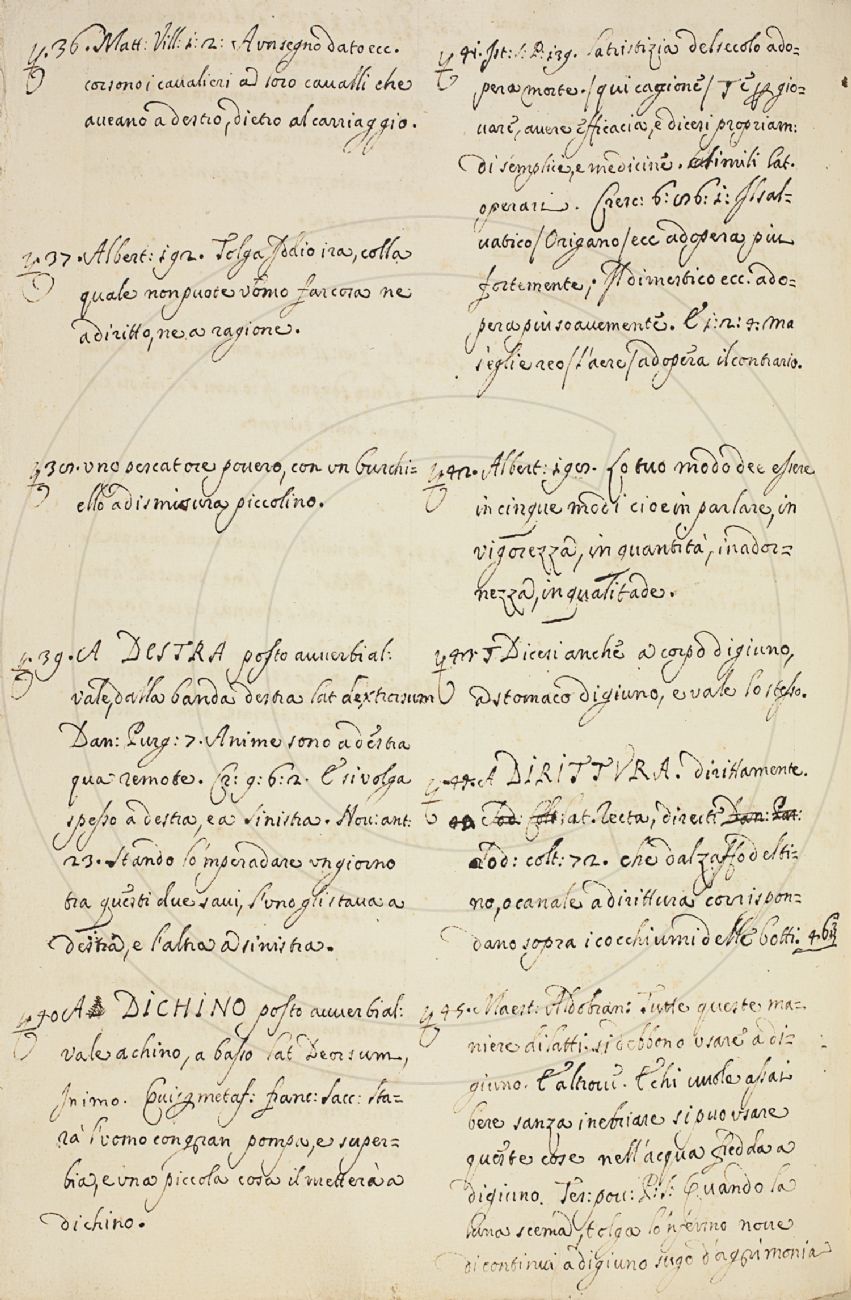 36. Matt: Vill: 1: 2: A un segno dato ecc.
corsono i cavalieri ad loro cavalli che
aveano a destro, dietro al carriaggio.
37. Albert: 192. Tolga Iddio ira, colla
quale non puote vomo far cosa ne
a diritto, ne a ragione.
38. uno pescatore povero, con un burchi=
ello a dismisura piccolino.
39. A DESTRA posto avverbial:
vale, dalla banda destra lat dextrorsum
Dan: Purg: 7. Anime sono a destra
qua remote. Cr: 9: 6: 2. E si volga
spesso a destra, e a sinistra. Nov: ant:
23. Stando lo 'mperadore un giorno
tra questi due savi, l'uno gli stava a
destra, e l'altro a sinistra.
40 A DICHINO posto avverbial:
vale a chino, a basso lat Deorsum,
in imo. metaf: franc: Sacc: Sta=
rà l'uomo con gran pompa, e super=
bia, e una piccola cosa il metterà a
dichino.
41. P. 139. la tristizia del secolo ado=
pera morte. / qui cagione / gio=
vare, avere efficacia, e dicesi propriam:
di semplici, e medicine. lat.
operari. Cresc: 6: 86: 1: Il sal=
vatico / Origano / ecc adopera piu
fortemente, Il dimestico ecc. ado=
pera piu soavemente. E 1: 2: 4: ma
s'egli e reo / l'aere / adopera il contrario.
42. Albert: 198. Lo tuo modo dee essere
in cinque modi cioe in parlare, in
vigorezza, in quantità, in ador=
nezza, in qualitade.
43. Dicesi anche a corpo digiuno,
a stomaco digiuno, e vale lo stesso.
44. A DIRITTURA. dirittamente.
lat. Recta, directi
Sod: colt: 72. che dal zaffo del ti=
no, o canale a dirittura corrispon=
dano sopra i cocchiumi delle botti.
45. Maest: Aldobran: Tutte queste ma=
niere di latti si debbono usare a di=
giuno. E altrove. E chi vuole assai
bere sanza inebriare si puo usare
queste cose nell'acqua fredda a
digiuno. Tes: pov: P: S: Quando la
luna scema, tolga lo 'nfermo nove
dì continui a digiuno sugo d'agrimonia